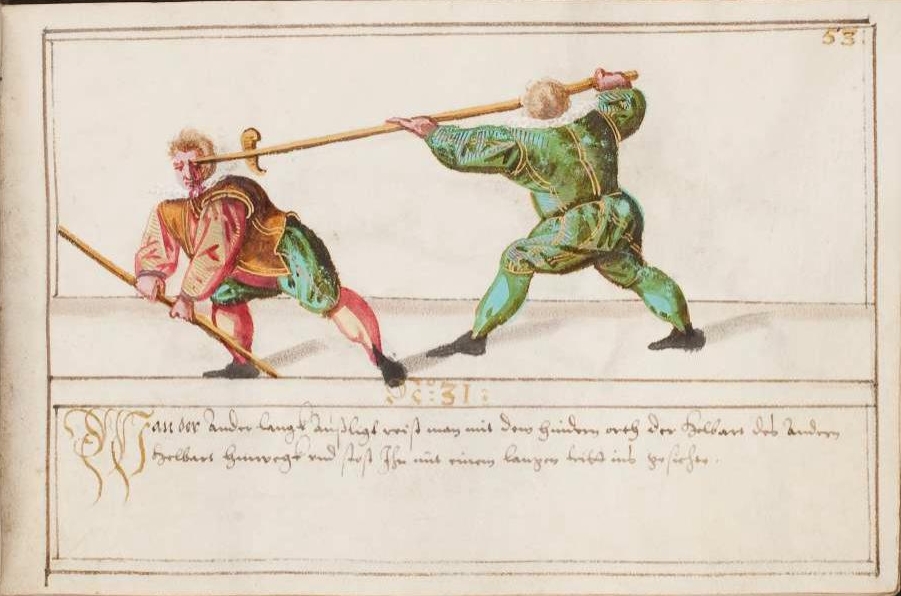 53.
No: 31:
Wan der Ander lange Außligt reist man mit dem hindern orth der Helbart des Andern
Helbart hinwegk vnd stost Ihn mit einem langen tritt ins gesichte.